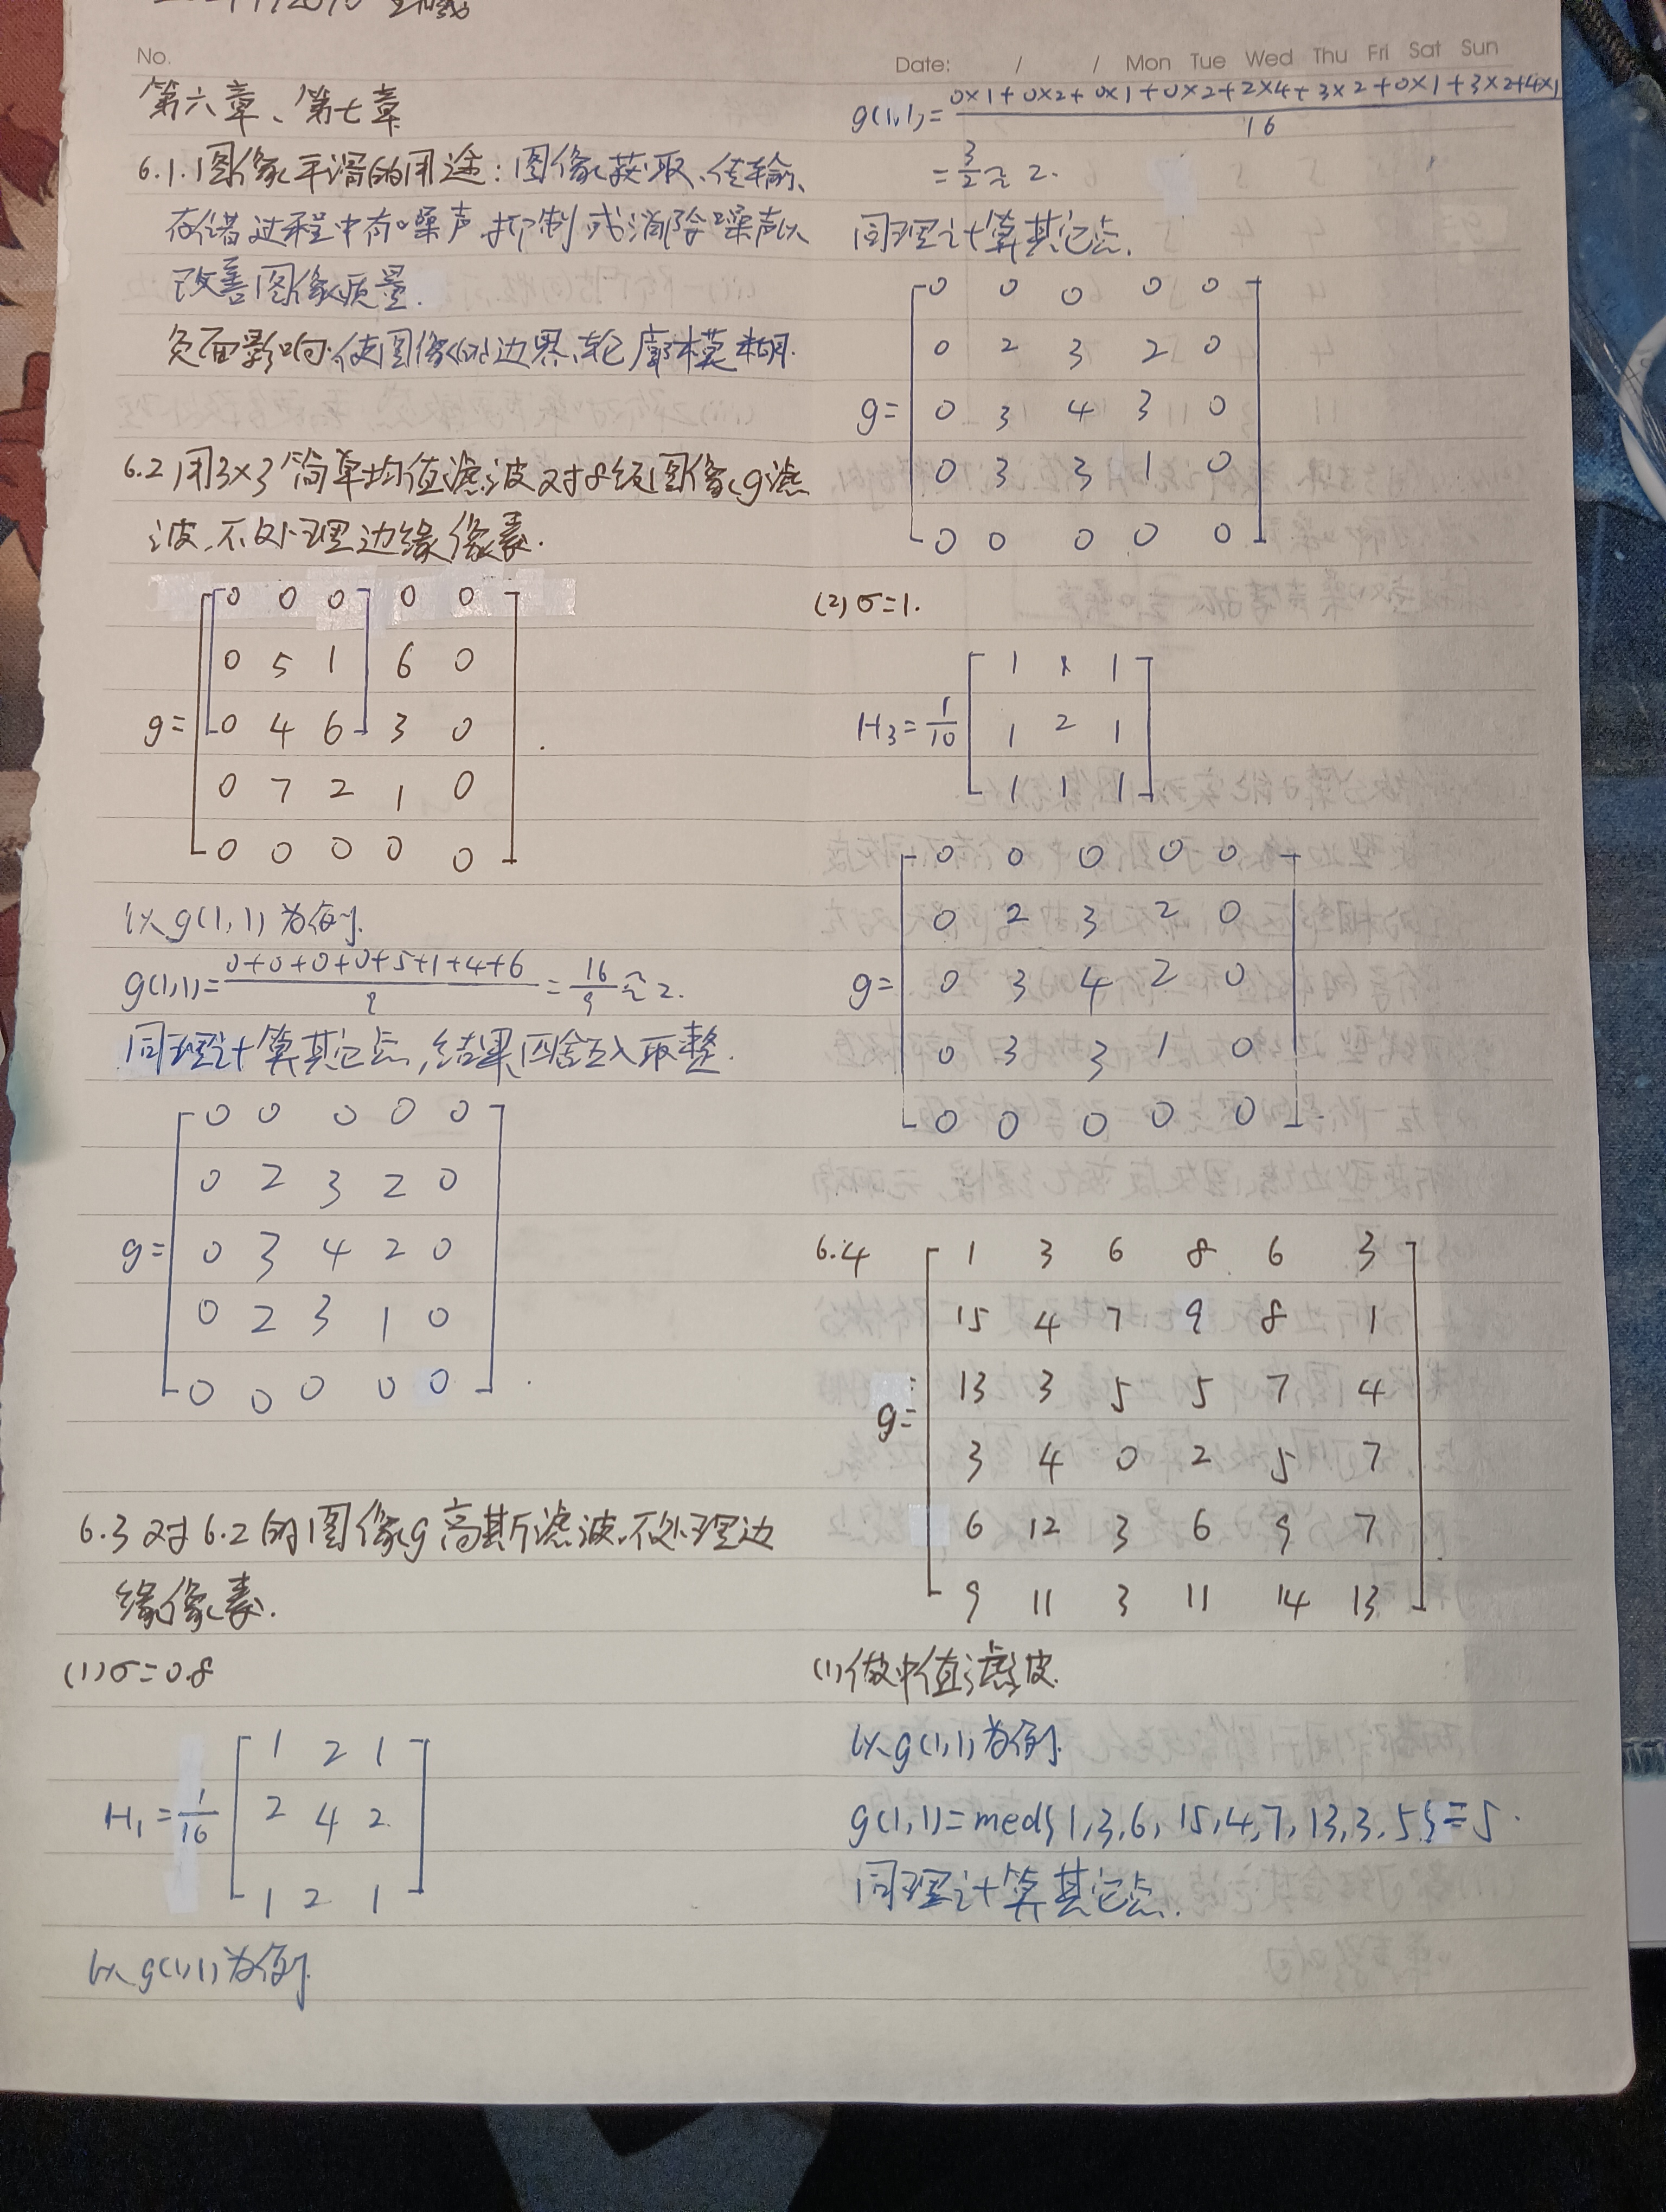 No.
第六章、第七章
6.1.图像平滑的用途:图像获取、传输、
存储过程中有噪声,抑制或消除噪声以
改善图像质量.
负面影响:使图像的边界、轮廓模糊.
6.2 用3×3简单均值滤波对8级图像g滤
波,不处理边缘像素.
0 0 0 0 0
0 5 1 6 0
g= 0 4 6 3 0 .
0 7 2 1 0
0 0 0 0 0
以g(1,1)为例.
g(1,1)= 0+0+0+0+5+1+4+6 / 9 = 16/9 ≈ 2.
同理计算其它点,结果四舍五入取整.
0 0 0 0 0
0 2 3 2 0
g= 0 3 4 2 0
0 2 3 1 0
0 0 0 0 0 .
6.3 对6.2的图像g高斯滤波,不处理边
缘像素.
(1)σ=0.8
1 2 1
H₁= 1/16 2 4 2
1 2 1
以g(1,1)为例.
Date: / / Mon Tue Wed Thu Fri Sat Sun
g(1,1)= 0×1+0×2+0×1+0×2+2×4+3×2+0×1+3×2+4×1 / 16
= 3/2 ≈ 2.
同理计算其它点.
0 0 0 0 0
0 2 3 2 0
g= 0 3 4 3 0
0 3 3 1 0
0 0 0 0 0
(2)σ=1.
1 1 1
H₃= 1/10 1 2 1
1 1 1
0 0 0 0 0
0 2 3 2 0
g= 0 3 4 2 0
0 3 3 1 0
0 0 0 0 0 .
6.4 1 3 6 8 6 3
15 4 7 9 8 1
g= 13 3 5 5 7 4
3 4 0 2 5 7
6 12 3 6 9 7
9 11 3 11 14 13
(1)做中值滤波.
以g(1,1)为例.
g(1,1)=med{1,3,6,15,4,7,13,3,5}=5.
同理计算其它点.